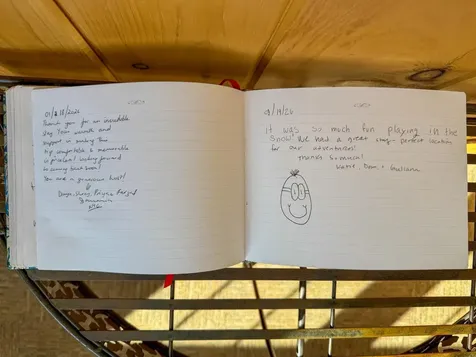 01/18/2026
Thank you for an incredible
stay. Your warmth and
support in making this
trip comfortable & memorable
is priceless! Looking forward
to coming back soon!
You are a generous host!
1/19/26
It was so much fun playing in the
snow! We had a great stay - perfect location
for our adventures!
Thanks so much!
Katie, Dan, + Giuliana